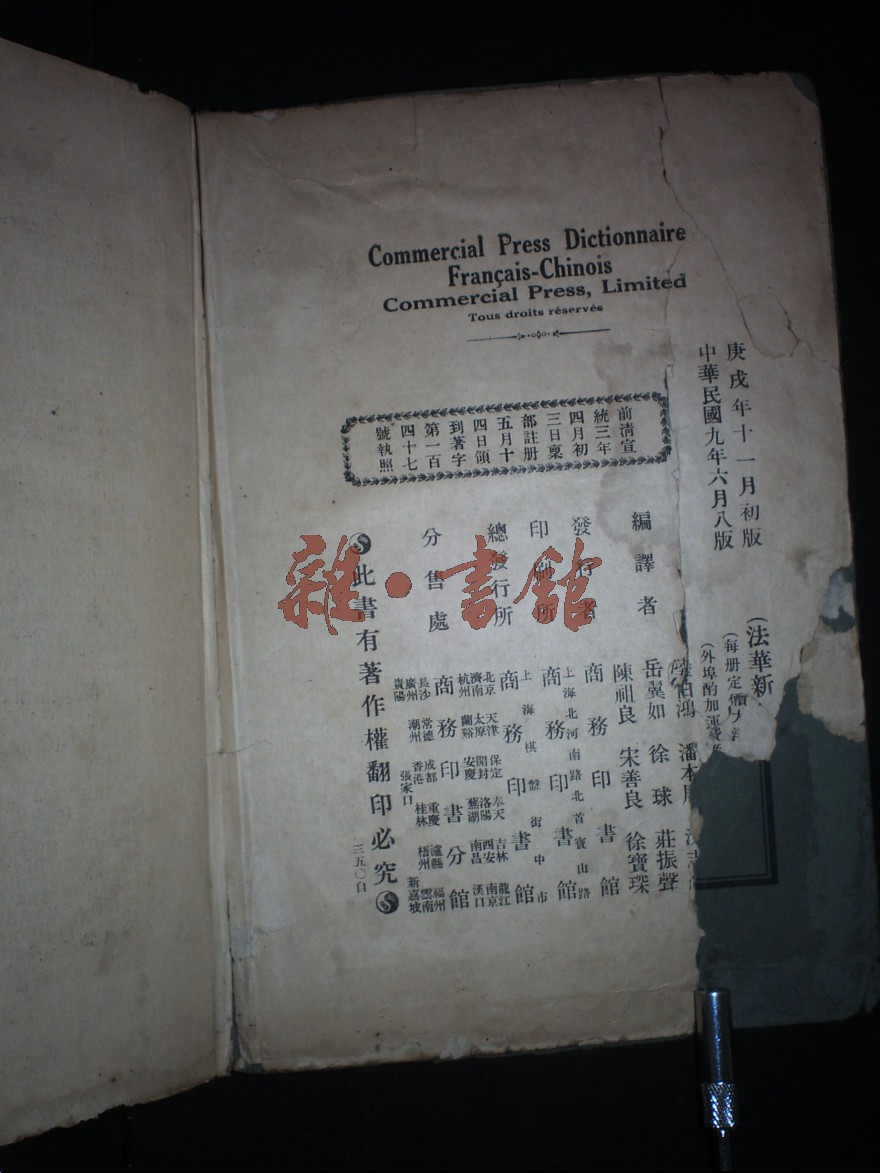 Commercial Press Dictionnaire
Français-Chinois
Commercial Press, Limited
Tous droits réservés
庚戌年十一月初版
中華民國九年六月八版
(法華新
(每册定價大
(外埠酌加運費
前清宣
統三年
四月初
三日稟
部註册
五月十
四日領
到著字
第一百
四十七
號執照
編譯者
伯鴻 潘本
岳翼如 徐球 莊振聲
陳祖良 宋善良 徐寶琛
發行者
商務印書館
印刷所
上海北河南路北首寶山路
商務印書館
總發行所
上海棋盤街中市
商務印書館
分售處
北京 天津 保定 奉天 吉林 龍江
濟南 太原 開封 洛陽 西安 南京
杭州 蘭谿 安慶 蕪湖 南昌 漢口
商務印書分館
長沙 常德 成都 重慶 瀘縣 福州
廣州 潮州 香港 桂林 梧州 雲南
貴陽 張家口 新嘉坡
此書有著作權翻印必究
三五〇白
雜·書館